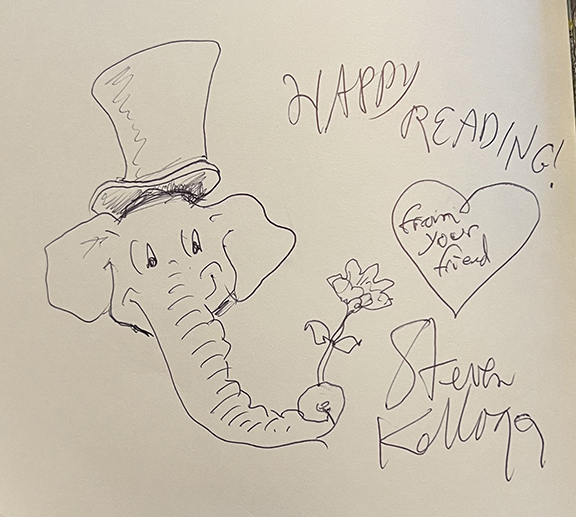 HAPPY
READING!
from
your
friend
Steven
Kellogg